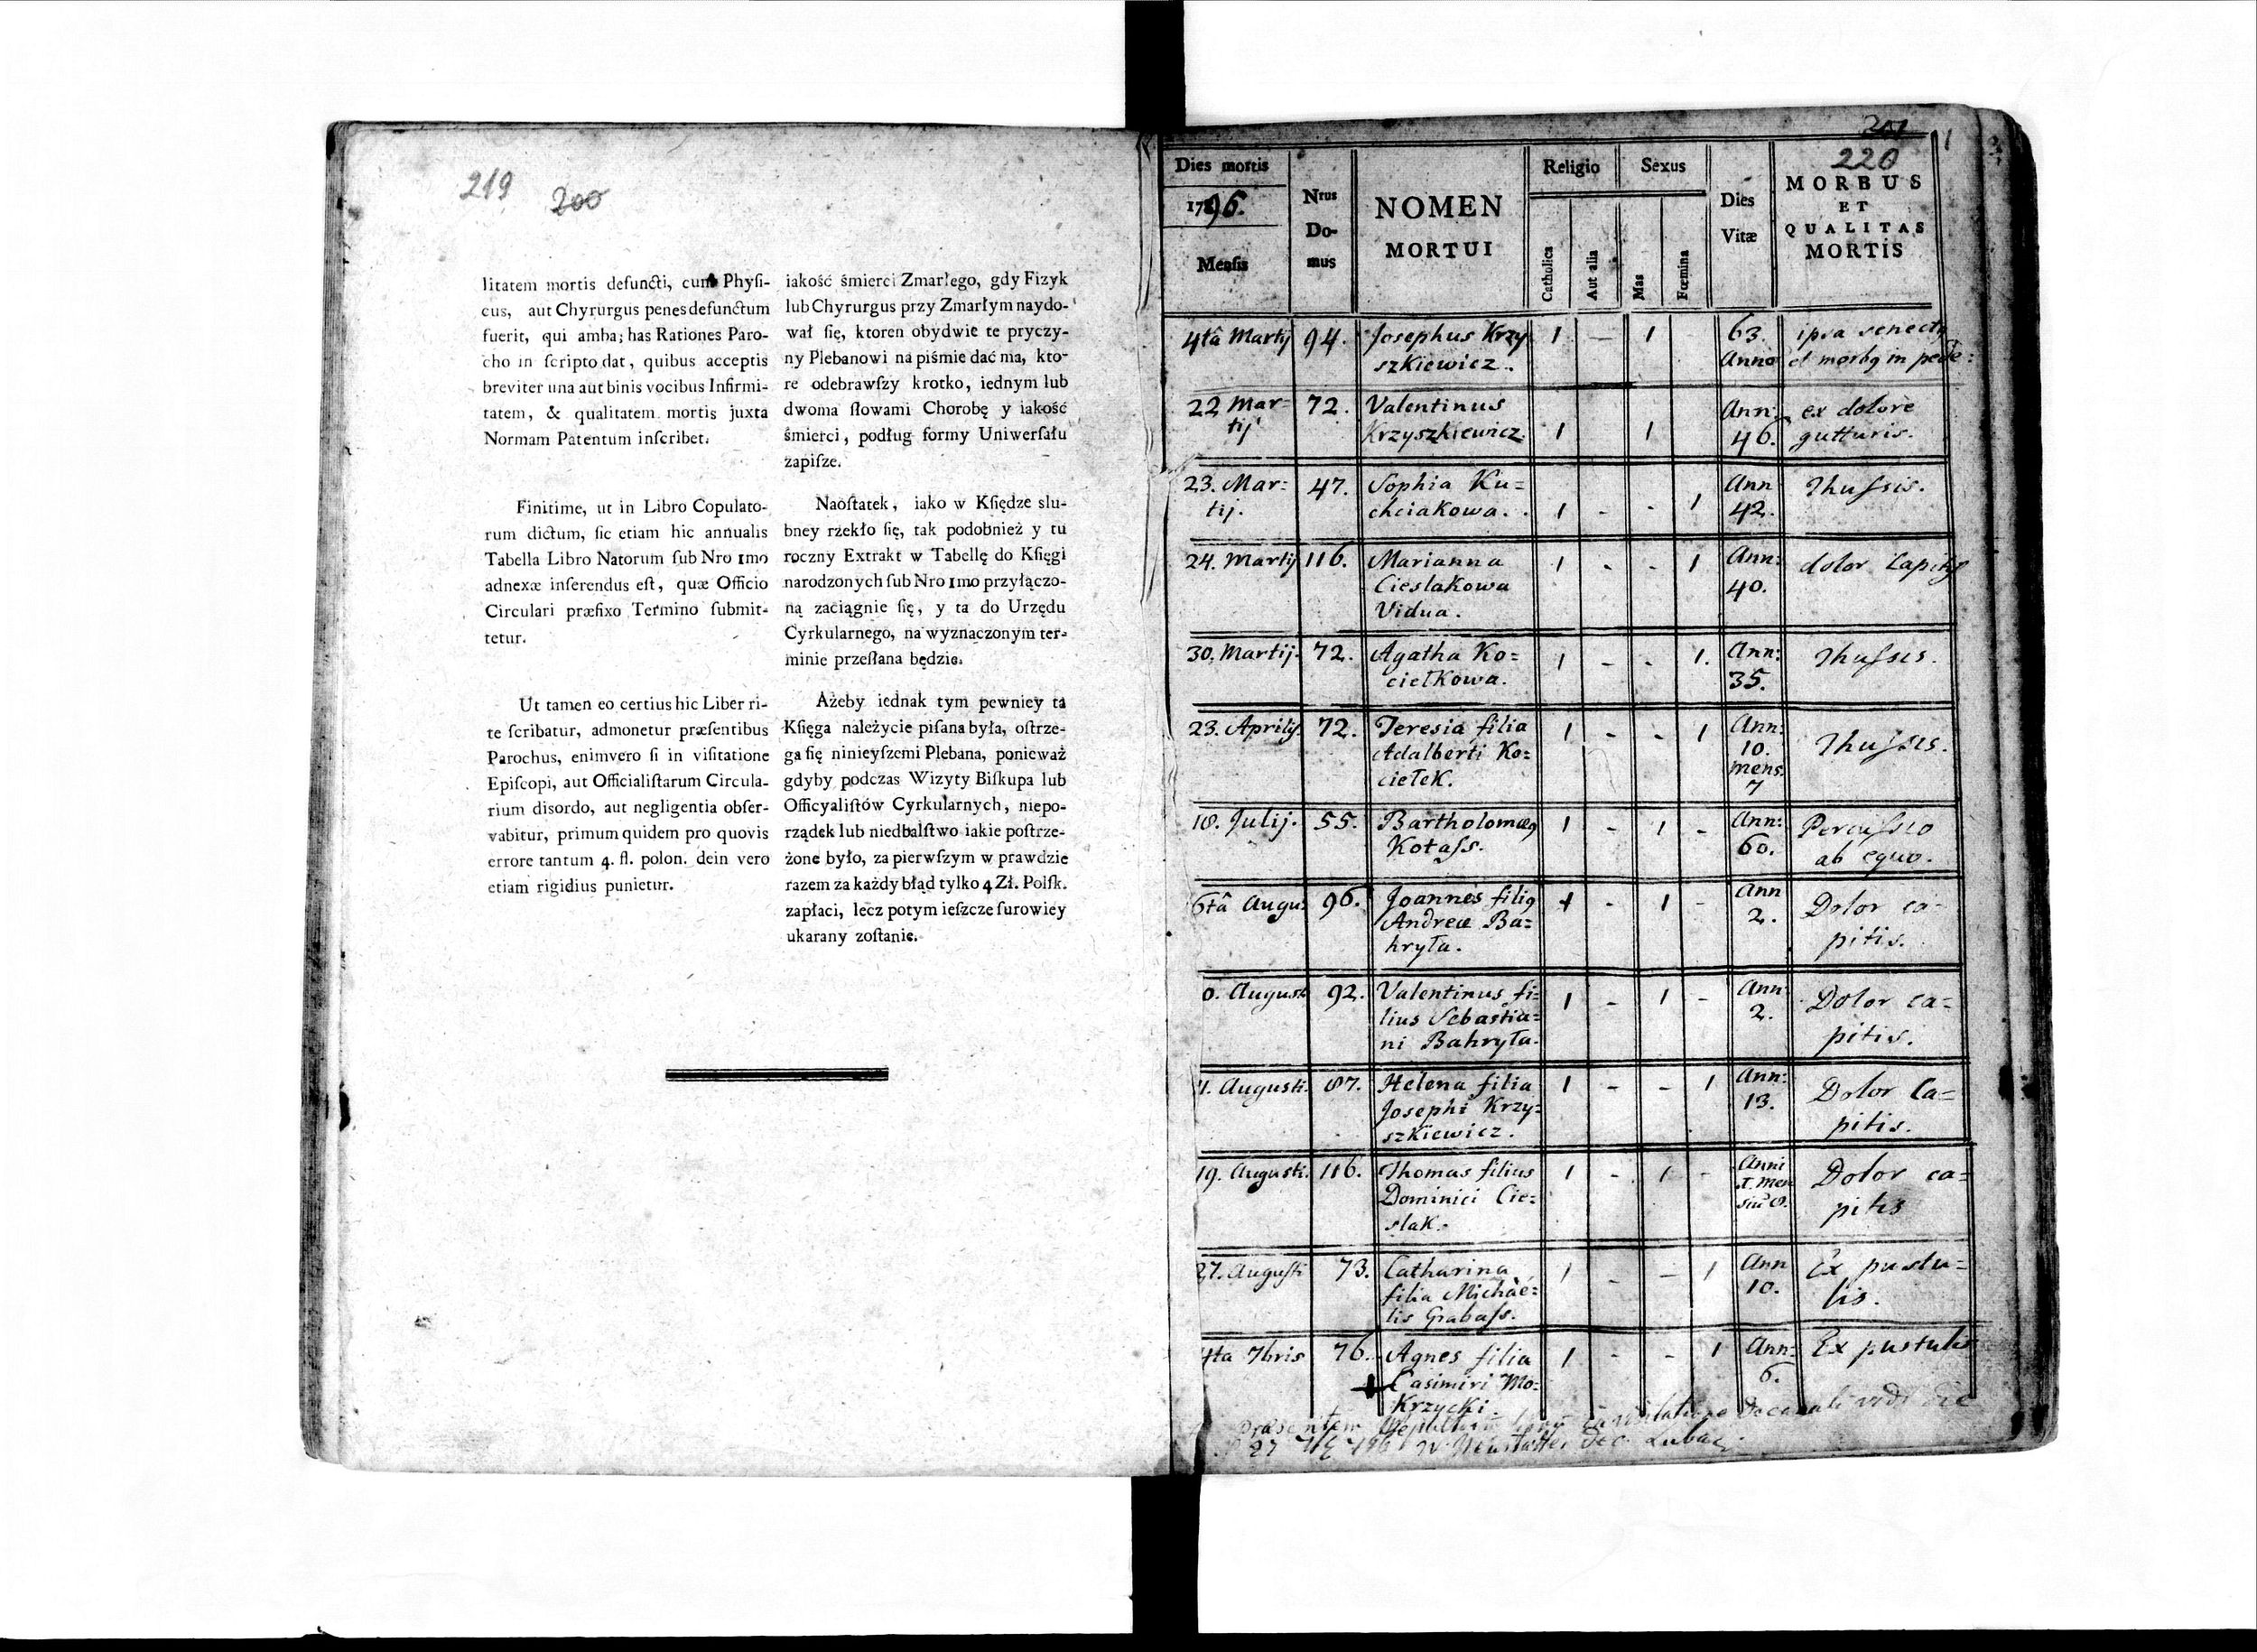 219 200
litatem mortis defuncti, cum Phyſi-
cus, aut Chyrurgus penes defunctum
fuerit, qui amba; has Rationes Paro-
cho in ſcripto dat, quibus acceptis
breviter una aut binis vocibus Infirmi-
tatem, & qualitatem mortis juxta
Normam Patentum inſcribet.
Finitime, ut in Libro Copulato-
rum dictum, ſic etiam hic annualis
Tabella Libro Natorum ſub Nro 1mo
adnexæ inſerendus eſt, quæ Officio
Circulari præfixo Termino ſubmit-
tetur.
Ut tamen eo certius hic Liber ri-
te ſcribatur, admonetur præſentibus
Parochus, enimvero ſi in viſitatione
Epiſcopi, aut Officialiſtarum Circula-
rium disordo, aut negligentia obſer-
vabitur, primum quidem pro quovis
errore tantum 4. fl. polon. dein vero
etiam rigidius punietur.
iakość śmierci Zmarłego, gdy Fizyk
lub Chyrurgus przy Zmarłym naydo-
wał ſię, ktoren obydwie te pryczy-
ny Plebanowi na piśmie dać ma, kto-
re odebrawſzy krotko, iednym lub
dwoma ſłowami Chorobę y iakość
śmierci, podług formy Uniwerſału
zapiſze.
Naoſtatek, iako w Kſiędze slu-
bney rzekło ſię, tak podobnież y tu
roczny Extrakt w Tabellę do Kſięgi
narodzonych ſub Nro 1mo przyłączo-
ną zaciągnie ſię, y ta do Urzędu
Cyrkularnego, na wyznaczonym ter-
minie przeſłana będzie.
Ażeby iednak tym pewniey ta
Kſięga należycie piſana była, oſtrze-
ga ſię ninieyſzemi Plebana, ponieważ
gdyby podczas Wizyty Biſkupa lub
Officyaliſtów Cyrkularnych, niepo-
rządek lub niedbalſtwo iakie poſtrze-
żone było, za pierwſzym w prawdzie
razem za każdy błąd tylko 4 Zł. Polſk.
zapłaci, lecz potym ieſzcze ſurowiey
ukarany zoſtanie.
201
220
Dies mortis
1796.
Menſis
Nrus
Do-
mus
NOMEN
MORTUI
Religio
Catholica
Aut alia
Sexus
Mas
Fœmina
Dies
Vitæ
MORBUS
ET
QUALITAS
MORTIS
4tâ Martij 94. Josephus Krzy 1 – 1 63. ipsa senectq
szkiewicz. Anno et morbq in pede:
22 Mar= 72. Valentinus Ann: ex dolore
tij Krzyszkiewicz. 1 1 46. gutturis.
23. Mar= 47. Sophia Ku= Ann Thuſsis.
tij. chciakowa. 1 - - 1 42.
24. Martij 116. Marianna 1 - - 1 Ann: dolor Capitis
Cieslakowa 40.
Vidua.
30. Martij. 72. Agatha Ko= 1 - - 1. Ann: Thuſsis.
ciełkowa. 35.
23. Aprilis. 72. Teresia filia 1 - - 1 Ann:
Adalberti Ko= 10. Thuſsis.
ciełek. mens.
7
18. Julij. 55. Bartholomæq 1 - 1 - Ann: Percuſsio
Kotaſs. 60. ab equo.
6tâ Augu. 96. Joannes filiq 1 - 1 - Ann Dolor ca-
Andreæ Ba= 2. pitis.
hryła.
0. August 92. Valentinus fi= 1 - 1 - Ann Dolor ca=
lius Sebastia= 2. pitis.
ni Bahryła.
1. Augusti. 87. Helena filia 1 - - 1 Ann: Dolor Ca=
Josephi Krzy= 13. pitis.
szkiewicz.
19. Augusti. 116. Thomas filius 1 - 1 - Anni Dolor ca=
Dominici Cie= 1. men pitis
slak. siu 8.
27. Augusti 73. Catharina 1 - - 1 Ann Ex pustu=
filia Michae= 10. lis.
lis Grabaſs.
4ta 7bris 76. Agnes filia 1 - - 1 Ann: Ex pustulis
Casimiri Mo= 6.
krzycki.
Præsentem Decanali vidi die
27